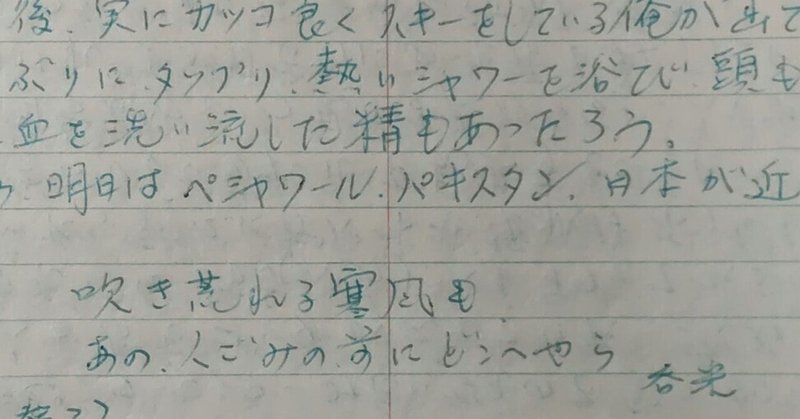 後、実にカッコ良くスキーをしている俺が出て
ぶりに、タップリ、熱いシャワーを浴び、頭も
血を洗い流した精もあったろう。
明日は、ペシャワール、パキスタン、日本が近
吹き荒れる寒風も、
あの、人ごみの前にどこへやら